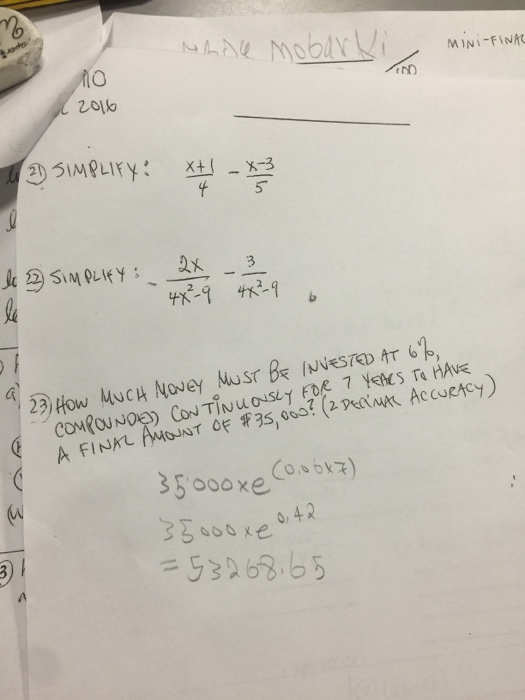 Mobarki
/100
MINI-FINAL
2016
21) SIMPLIFY: x+1/4 - x-3/5
22) SIMPLIFY: - 2x/4x²-9 - 3/4x²-9
23) HOW MUCH MONEY MUST BE INVESTED AT 6%,
COMPOUNDED CONTINUOUSLY FOR 7 YEARS TO HAVE
A FINAL AMOUNT OF $35,000? (2 DECIMAL ACCURACY)
35000xe^(0.06x7)
35000xe^0.42
=53268.65